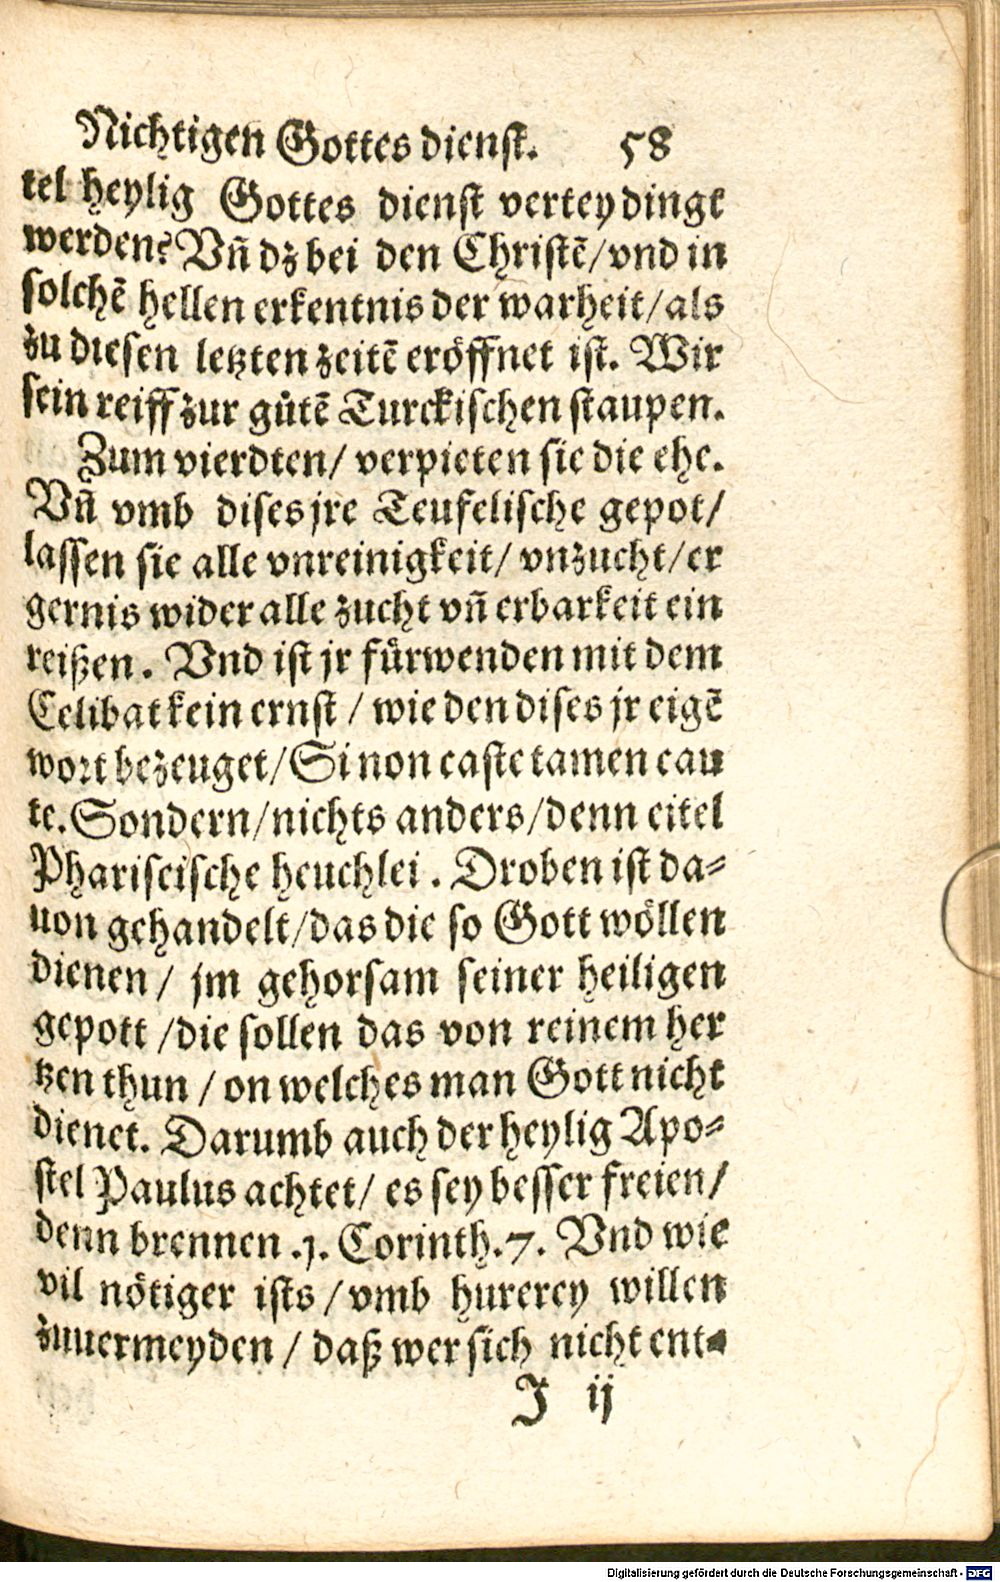 Nichtigen Gottes dienst. 58
tel heylig Gottes dienst verteydingt
werden? Vñ dz bei den Christē/ vnd in
solchē hellen erkentnis der warheit/ als
zu diesen letzten zeitē eröffnet ist. Wir
sein reiff zur gůtē Turckischen staupen.
Zum vierdten/ verpieten sie die ehe.
Vñ vmb dises jre Teufelische gepot/
lassen sie alle vnreinigkeit/ vnzucht/ er
gernis wider alle zucht vñ erbarkeit ein
reißen. Vnd ist jr fürwenden mit dem
Celibat kein ernst / wie den dises jr eigē
wort bezeuget/ Si non caste tamen cau
te. Sondern/ nichts anders/ denn eitel
Phariseische heuchlei. Droben ist da⸗
uon gehandelt/ das die so Gott wöllen
dienen / jm gehorsam seiner heiligen
gepott /die sollen das von reinem her
tzen thun / on welches man Gott nicht
dienet. Darumb auch der heylig Apo⸗
stel Paulus achtet/ es sey besser freien/
denn brennen .1. Corinth.7. Vnd wie
vil nötiger ists / vmb hurerey willen
zuuermeyden / daß wer sich nicht ent⸗
J ij
Digitalisierung gefördert durch die Deutsche Forschungsgemeinschaft - DFG